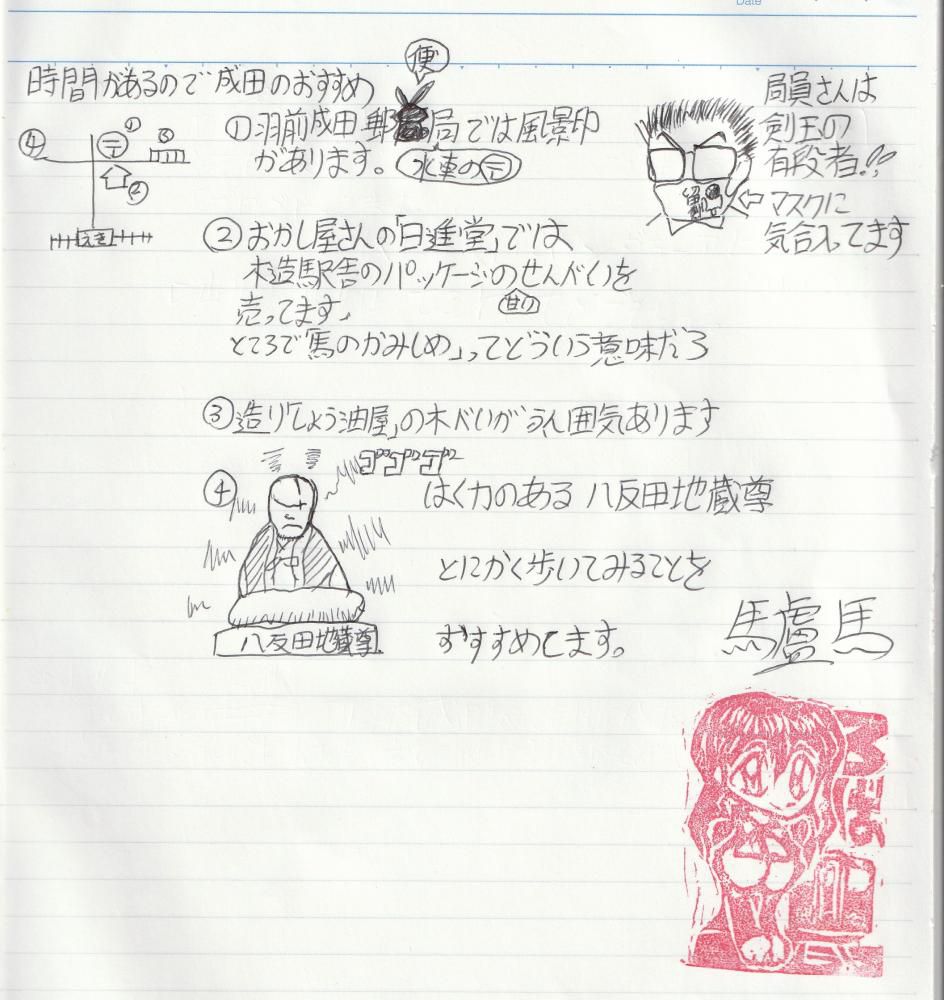 Date
時間があるので成田のおすすめ
便
①羽前成田郵局では風景印
があります。水車の〒
局員さんは
剣玉の
有段者!!
マスクに
気合入ってます
④
〒①
③
②
えき
②おかし屋さんの「日進堂」では
木造駅舎のパッケージのせんべいを
甘い
売ってます」
ところで「馬のかみしめ」ってどういう意味だろ
③造り「しょう油屋」の木べいがふん囲気あります
ゴゴゴ
④はく力のある 八反田地蔵尊
とにかく歩いてみることを
八反田地蔵尊
おすすめします。